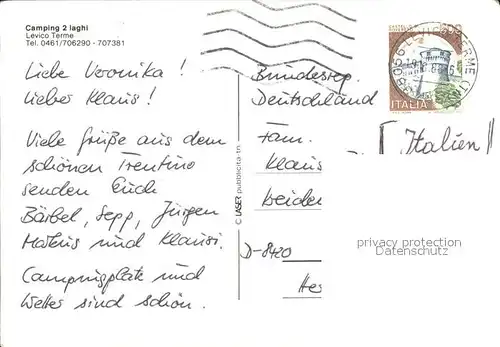 Camping 2 laghi
Levico Terme
Tel. 0461/706290 - 707381
Liebe Veronika!
Lieber Klaus!
Viele Grüße aus dem
schönen Trentino
senden Euch
Bärbel, Sepp, Jürgen
und Klausi.
Campingplatz und
Wetter sind schön.
© LASER pubblicità tn
Bundesrep.
Deutschland
Fam.
Klaus
D-8420
[Italien]
ITALIA
privacy protection
Datenschutz